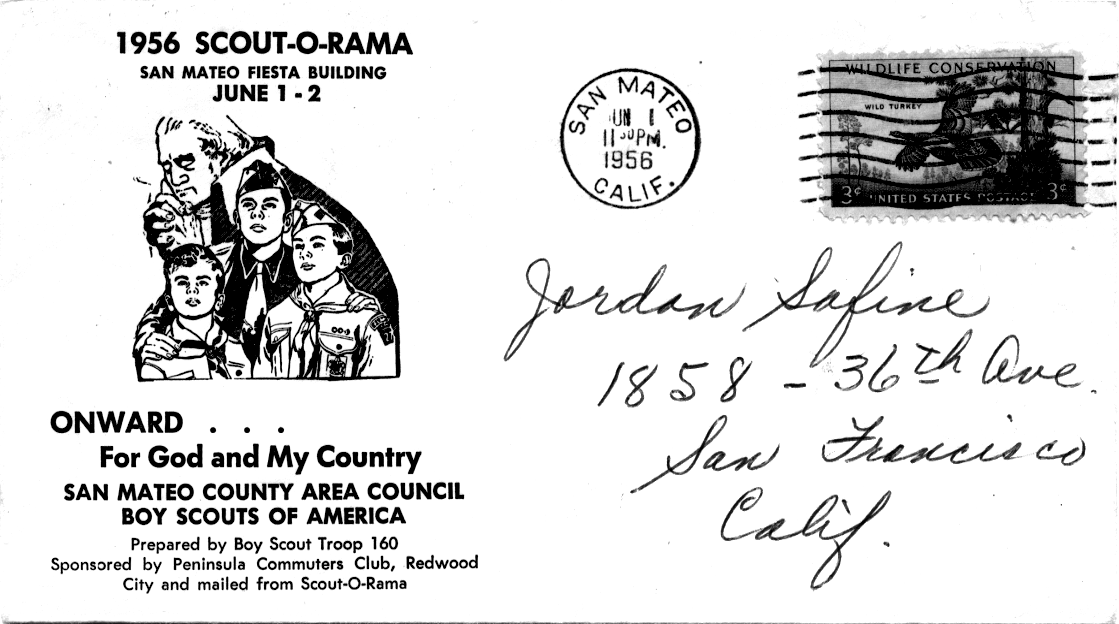 1956 SCOUT-O-RAMA
SAN MATEO FIESTA BUILDING
JUNE 1 - 2
ONWARD . . .
For God and My Country
SAN MATEO COUNTY AREA COUNCIL
BOY SCOUTS OF AMERICA
Prepared by Boy Scout Troop 160
Sponsored by Peninsula Commuters Club, Redwood
City and mailed from Scout-O-Rama
SAN MATEO
JUN 1
11 30 PM.
1956
CALIF.
WILDLIFE CONSERVATION
WILD TURKEY
3¢ UNITED STATES POSTAGE 3¢
Jordan Safine
1858 - 36th Ave.
San Francisco
Calif.